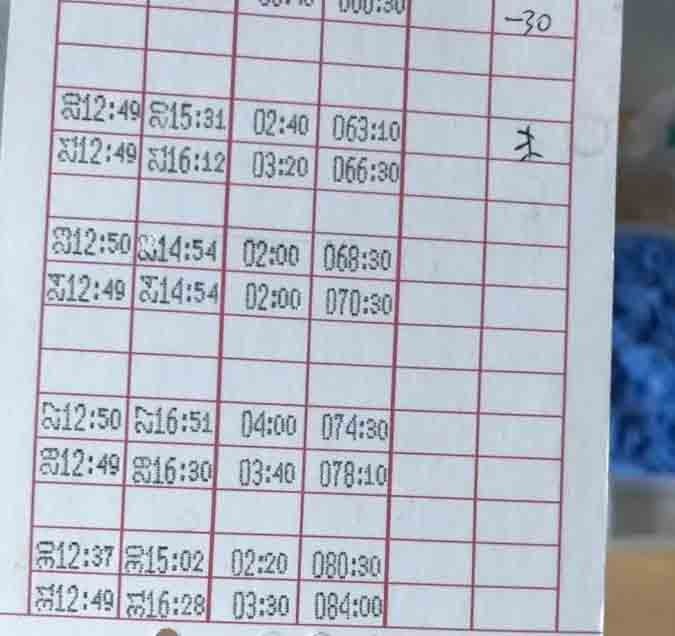 000:30
-30
20 12:49 20 15:31 02:40 063:10
21 12:49 21 16:12 03:20 066:30
23 12:50 23 14:54 02:00 068:30
24 12:49 24 14:54 02:00 070:30
27 12:50 27 16:51 04:00 074:30
28 12:49 28 16:30 03:40 078:10
30 12:37 30 15:02 02:20 080:30
31 12:49 31 16:28 03:30 084:00